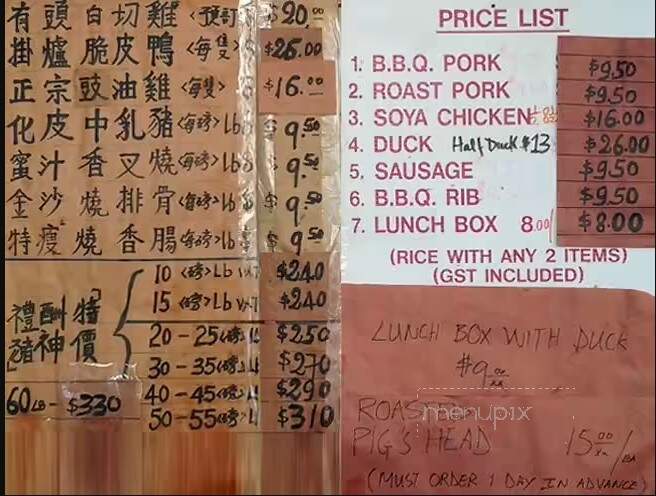 有頭白切雞<預訂> $20.00
掛爐脆皮鴨<每隻> $26.00
正宗豉油雞<每隻> $16.00
化皮中乳豬<每磅>Lb $9.50
蜜汁香叉燒<每磅>Lb $9.50
金沙燒排骨<每磅>Lb $9.50
特瘦燒香腸<每磅>Lb $9.50
禮豬酬神特價
10<磅>Lb $240
15<磅>Lb $240
20-25<磅> $250
30-35<磅> $270
40-45<磅> $290
50-55<磅> $310
60LB- $330
PRICE LIST
1. B.B.Q. PORK $9.50
2. ROAST PORK $9.50
3. SOYA CHICKEN $16.00
4. DUCK Half Duck $13 $26.00
5. SAUSAGE $9.50
6. B.B.Q. RIB $9.50
7. LUNCH BOX 8.00/ $8.00
(RICE WITH ANY 2 ITEMS)
(GST INCLUDED)
LUNCH BOX WITH DUCK
$9.00
menupix
ROASTED
PIG'S HEAD 15.00/EA
(MUST ORDER 1 DAY IN ADVANCE)